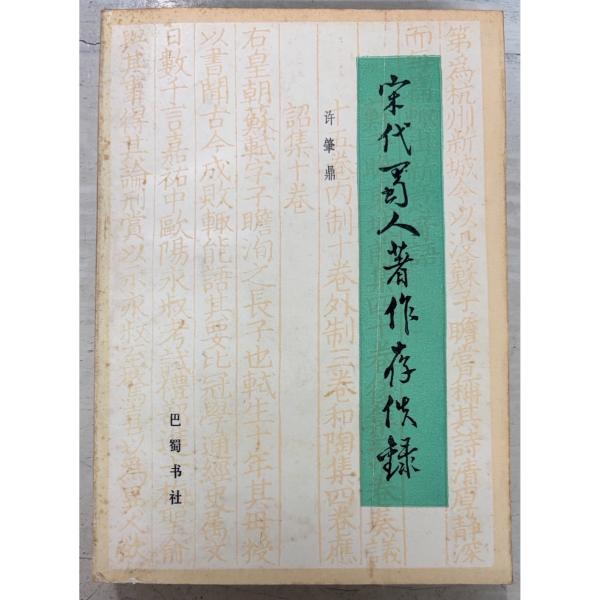 第為杭州新城令以没蘇子瞻嘗稱其詩清厚静深
宋代蜀人著作存佚録
许肇鼎
十五卷内制十卷外制三卷和陶集四卷應
詔集十卷
右皇朝蘇軾字子瞻洵之長子也軾生十年其母授
以書聞古今成敗輒能語其要比冠學通經史屬文
日數千言嘉祐中歐陽永叔考試禮
論刑賞以示永叔
為異人欲
巴蜀书社